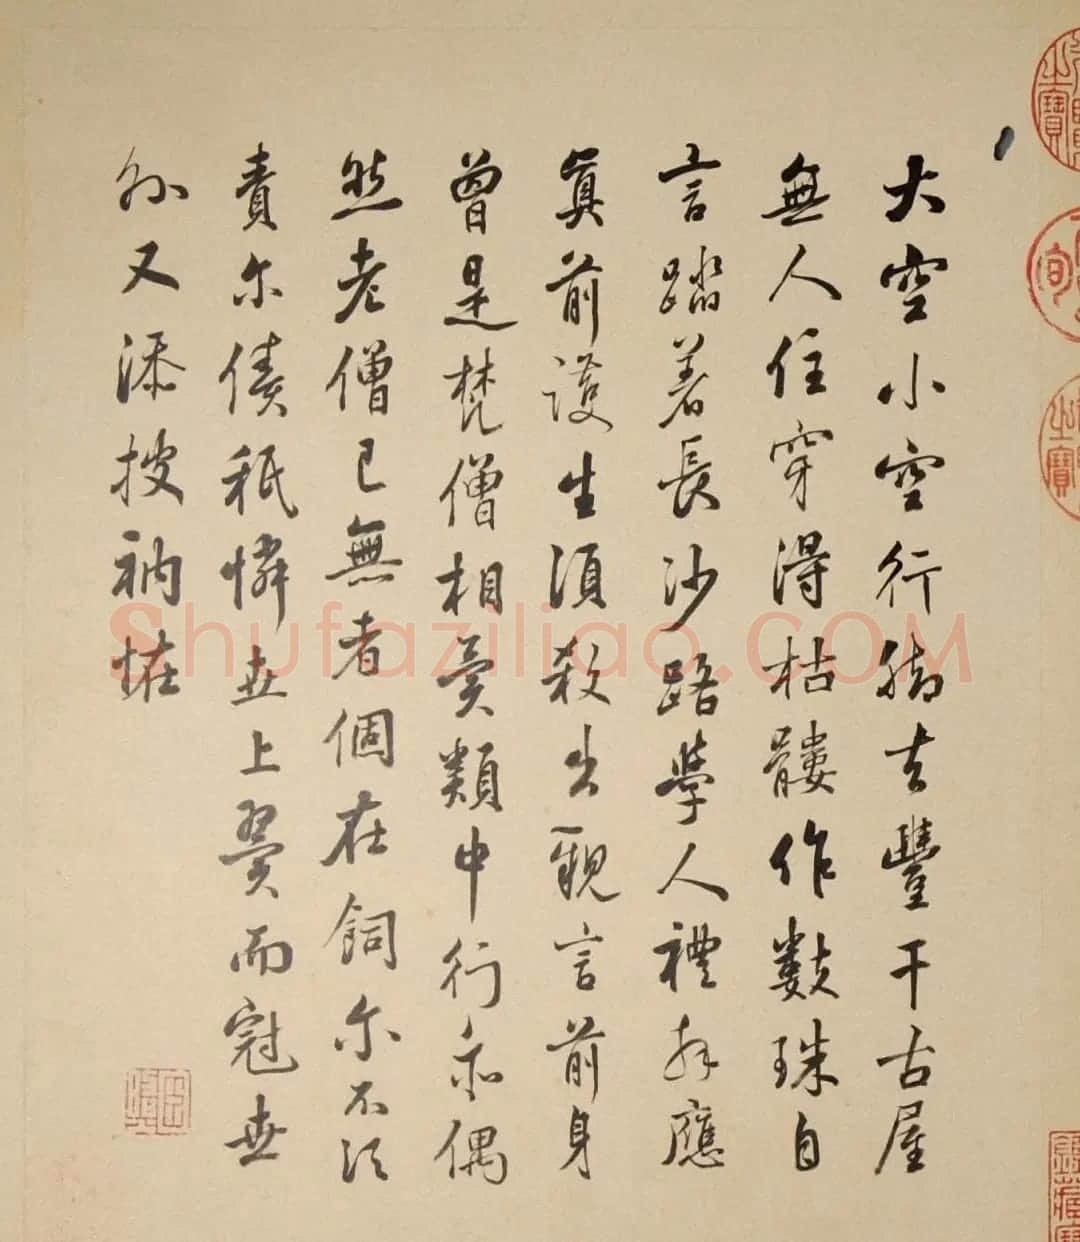 大空小空行腳去豐干古屋
無人住穿得枯髏作數珠自
言踏着長沙路學人禮拜應
眞前護生須殺出觀言前身
曾是梵僧相異類中行亦偶
然老僧已無者個在飼尔不須
責尔債秖憐世上翼而冠世
外又添披衲
Shufaziliao.COM
之寶
之寶